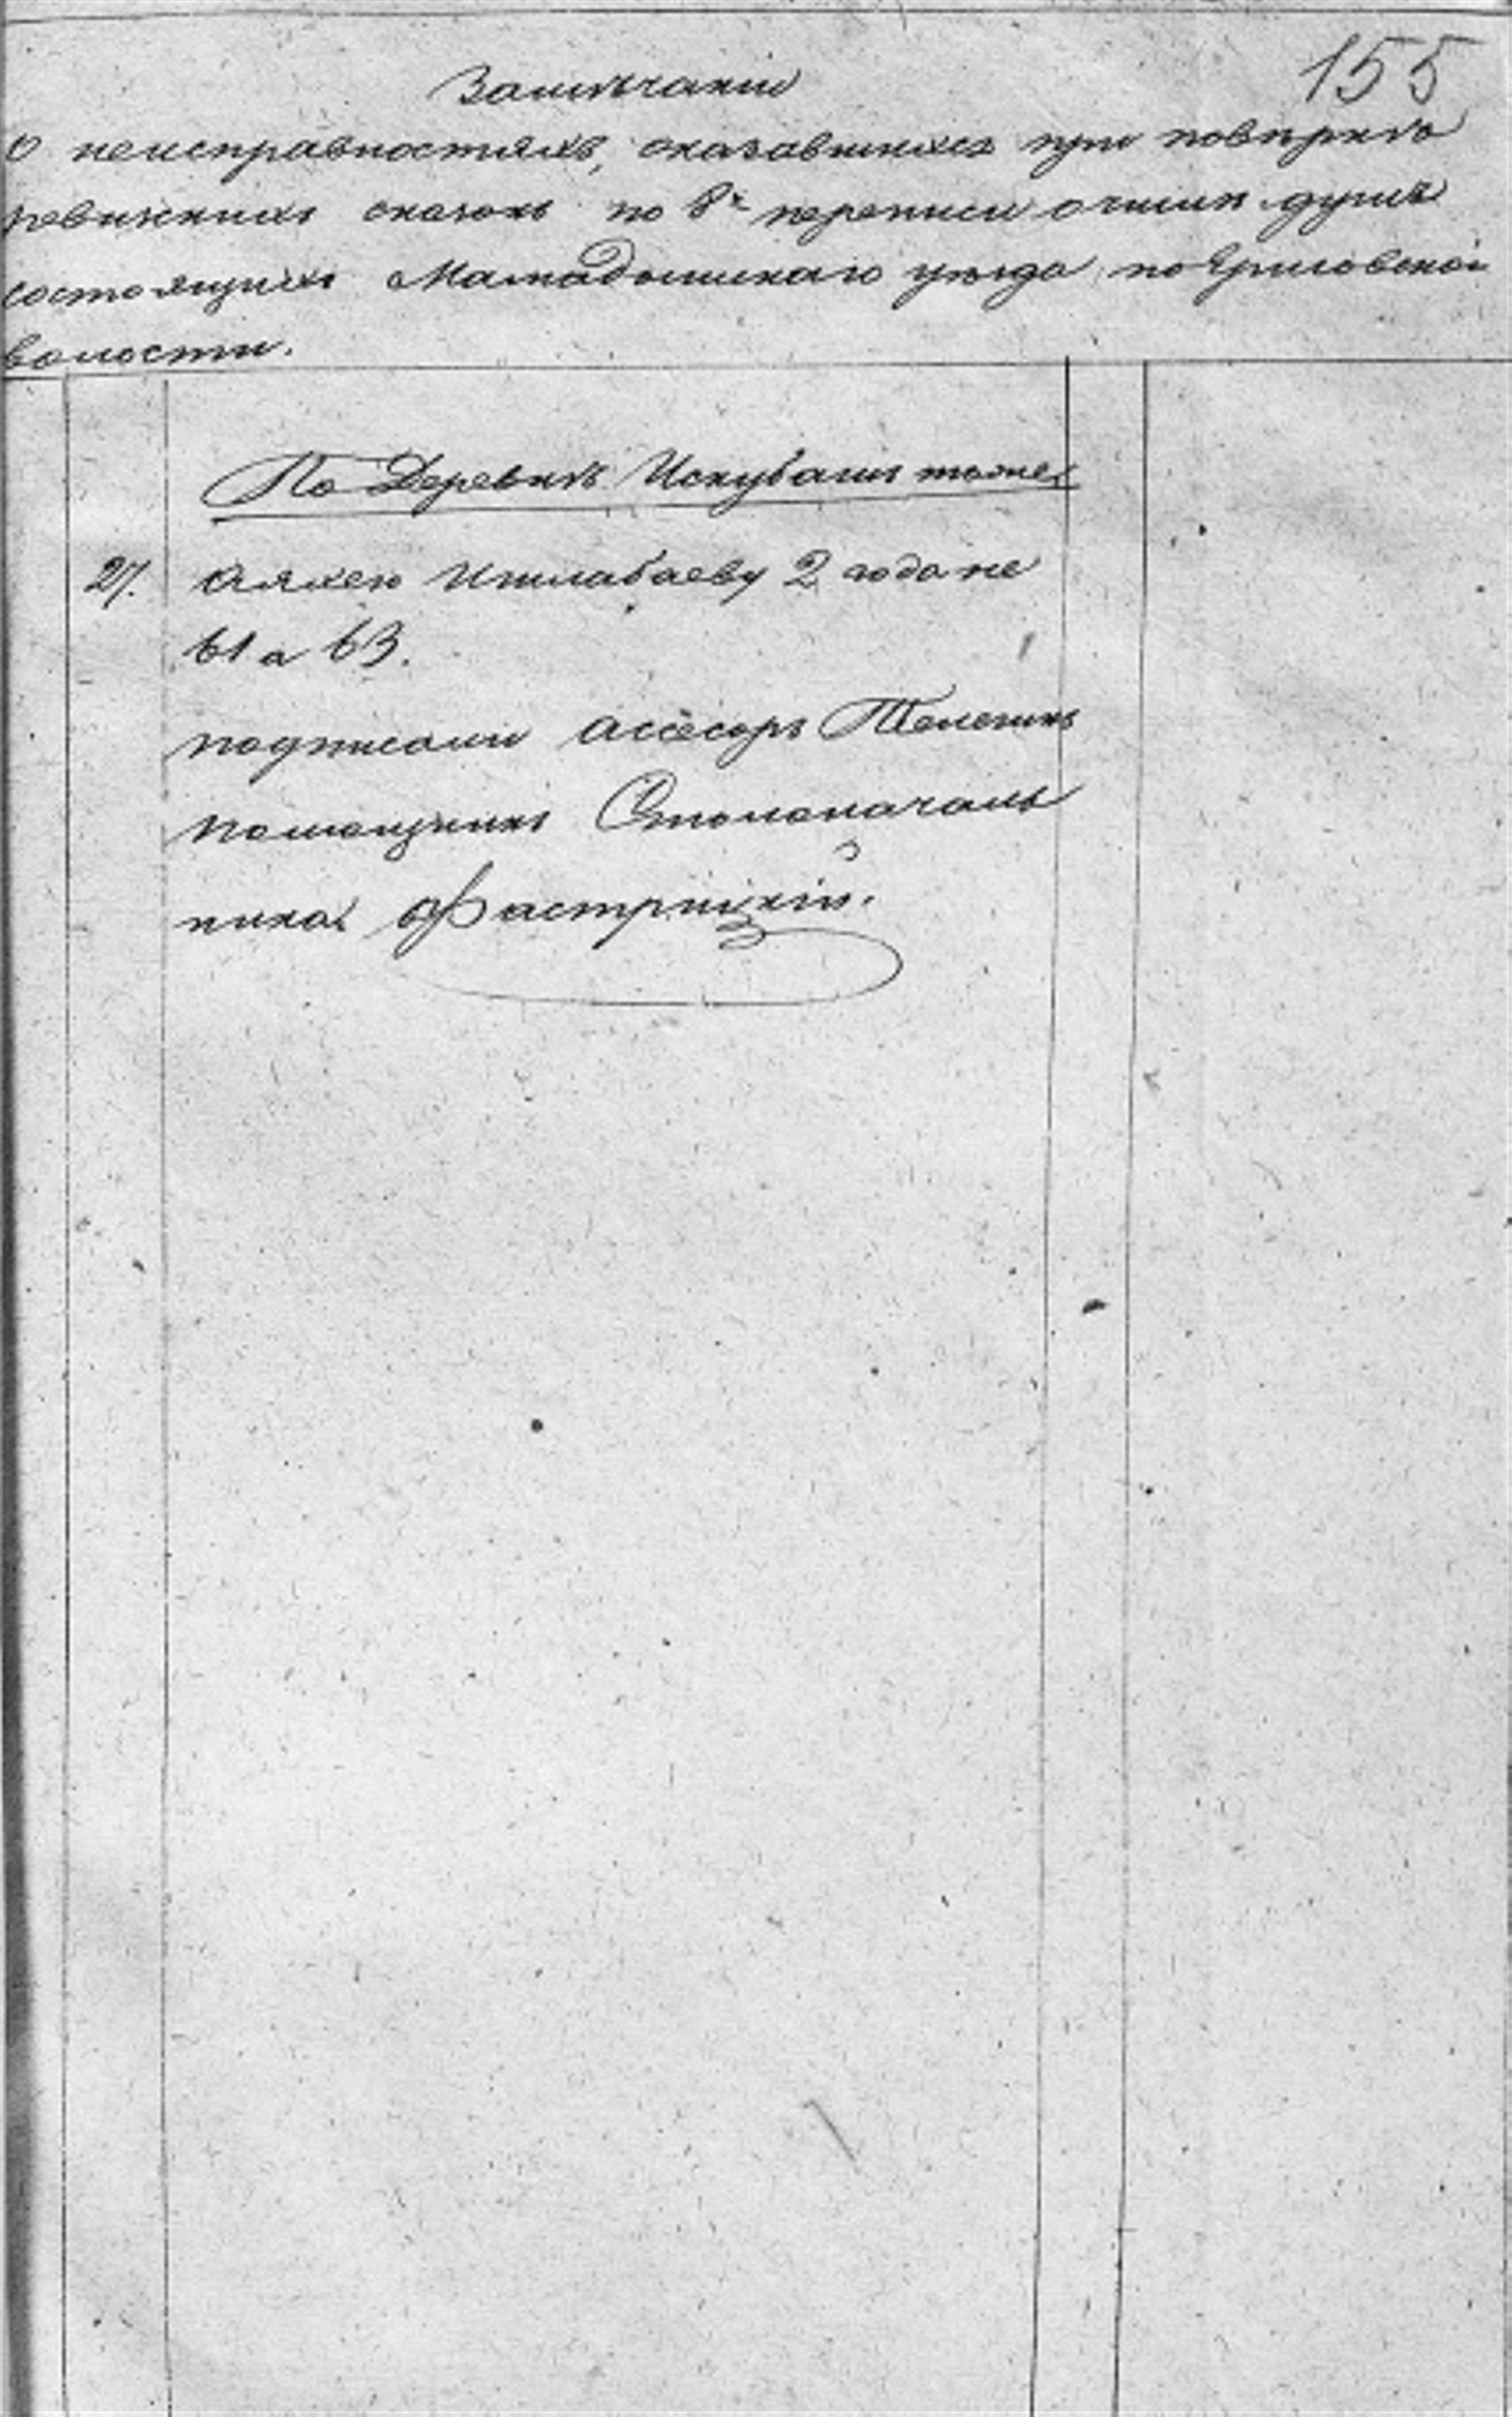 155
Замѣчаніи
О неисправностяхъ, оказавшихся при повѣркѣ
ревизскихъ сказокъ по 8й переписи о числѣ душъ
состоящихъ Мамадышскаго уѣзда по
волости.
По Деревнѣ Искубашъ тоже
27. Аляксею Ишлабаеву 2 года не
61 а 63.
подписали Ассесоръ Телегинъ
помощникъ Столоначаль
ника Фастрицкій.